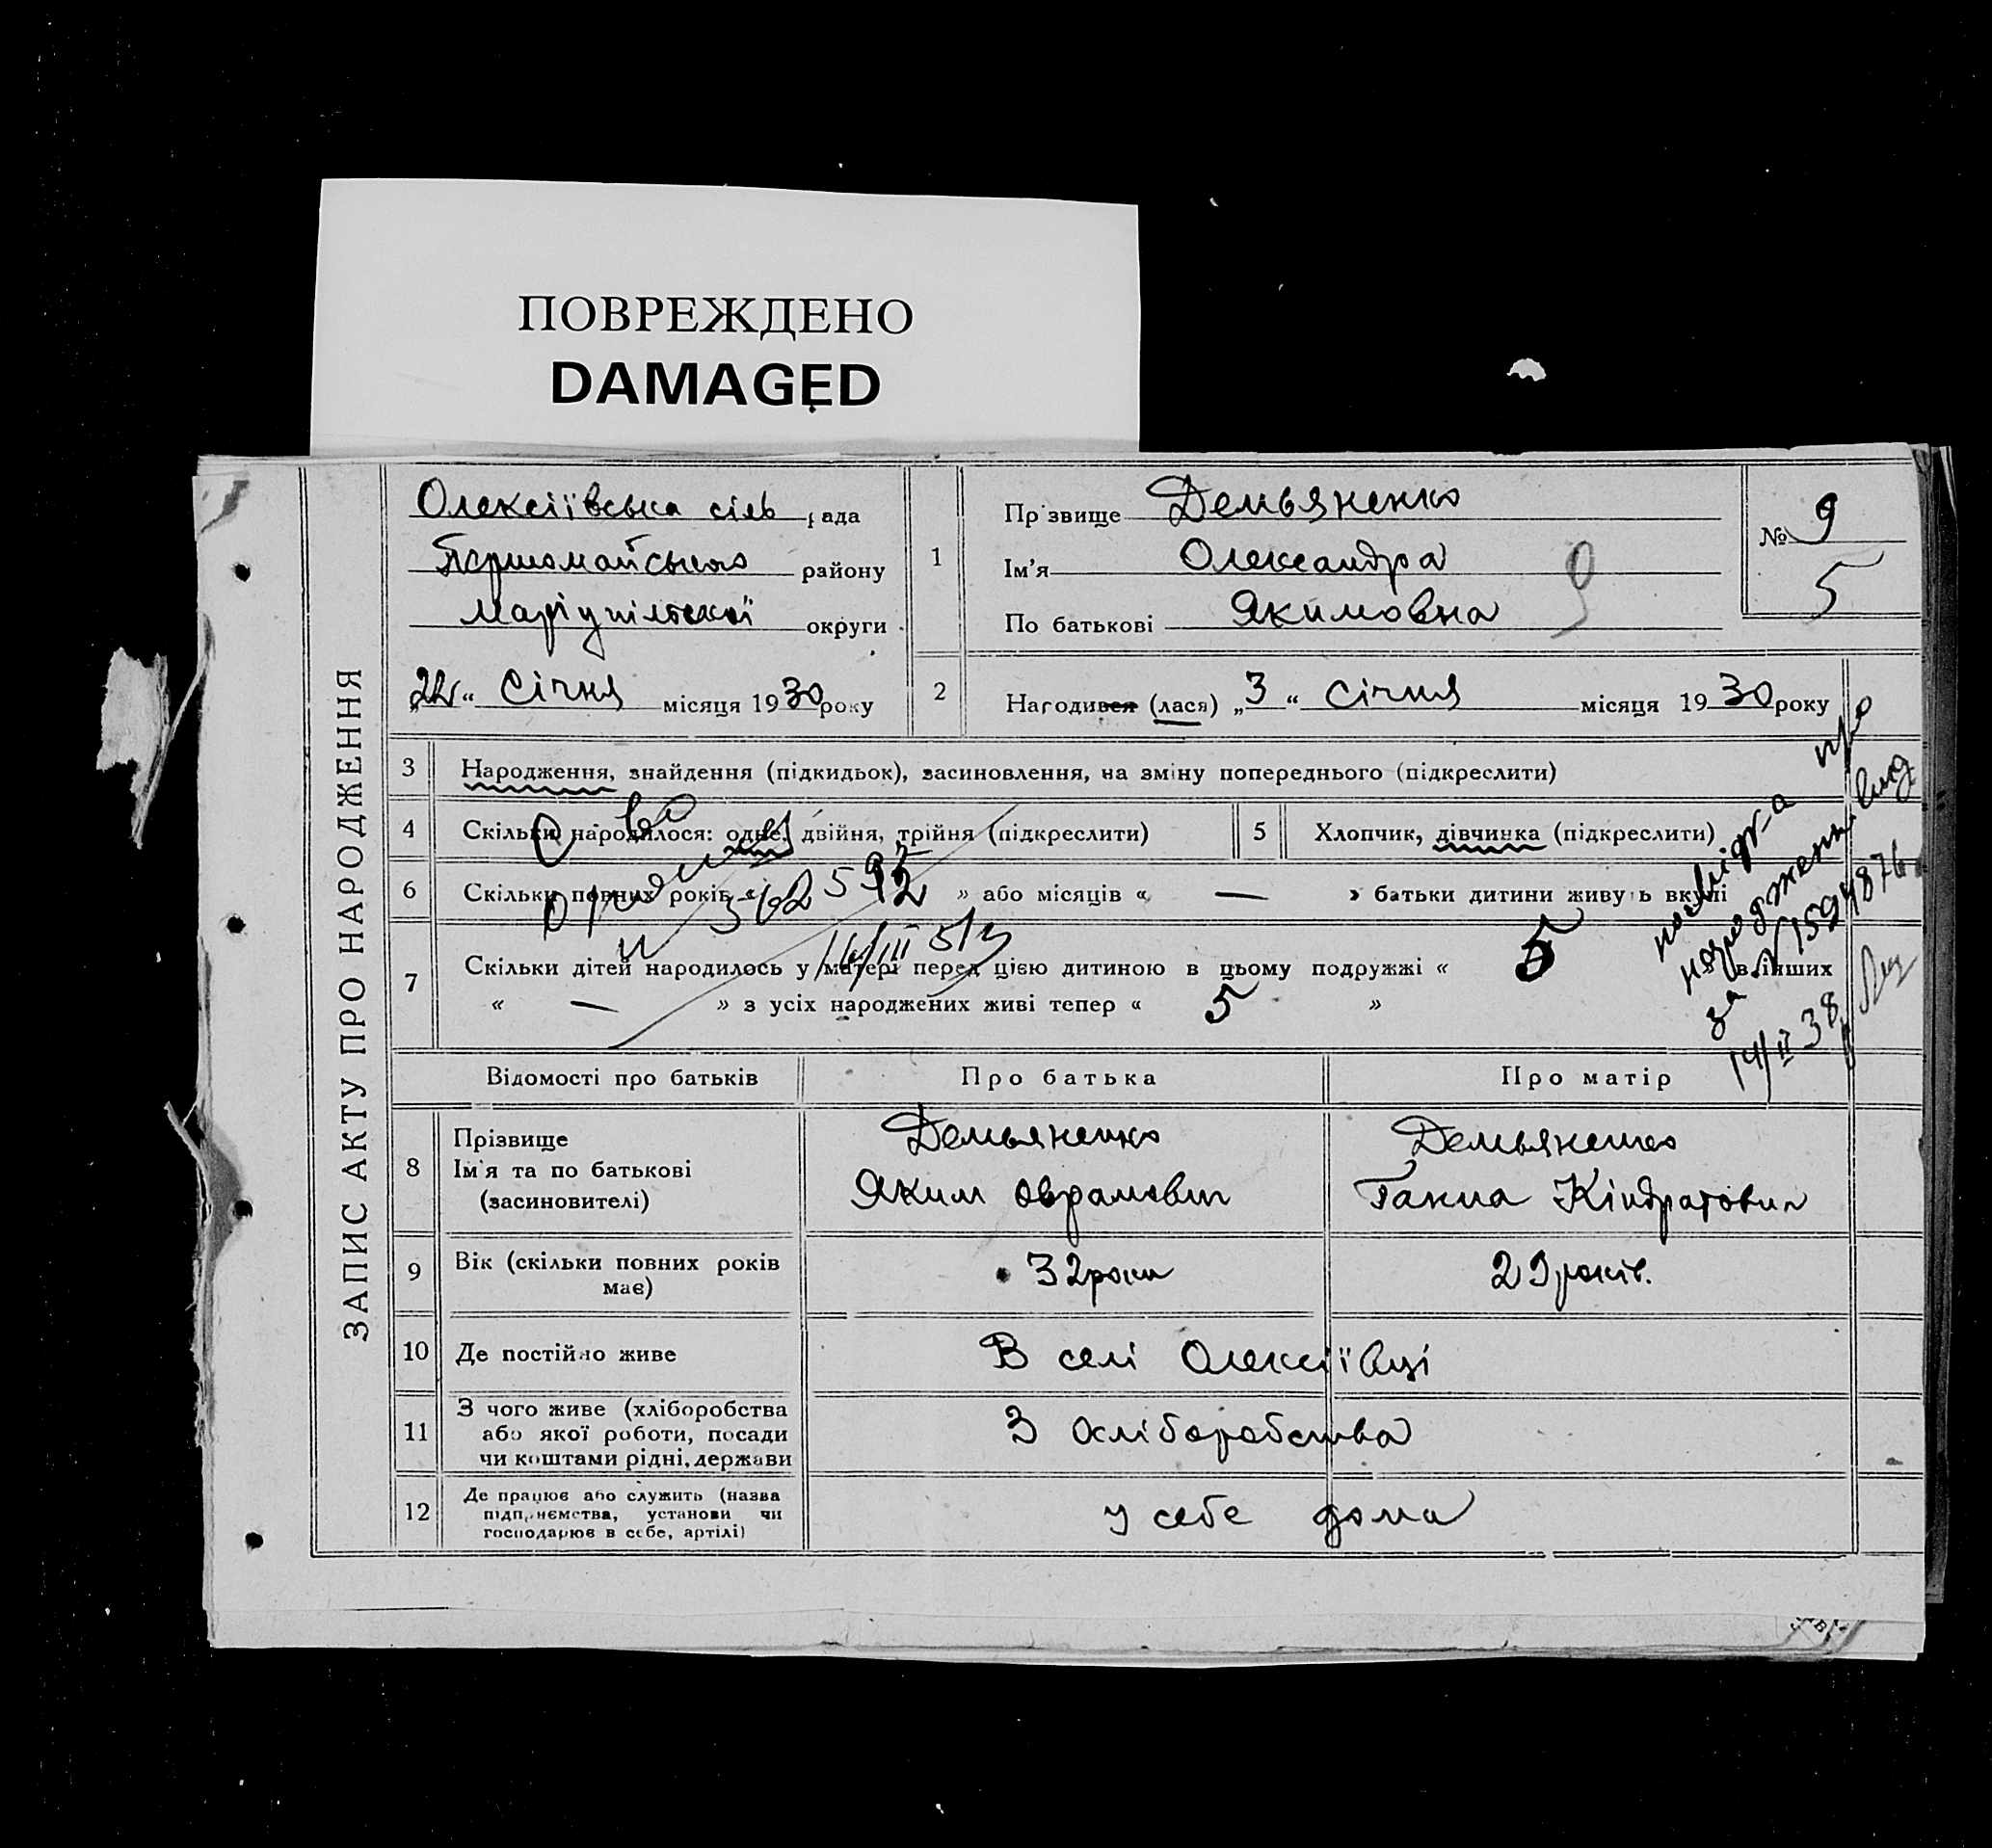 ПОВРЕЖДЕНО
DAMAGED
ЗАПИС АКТУ ПРО НАРОДЖЕННЯ
Олексіївська сіль рада
Першомайського району
Маріупільської округи
„22“ Січня місяця 1930 року
1
Прізвище Демьяненко
Ім'я Олександра
По батькові Якимовна
№ 9
5
2
Народився (лася) „3“ Січня місяця 1930 року
3
Народження, знайдення (підкидьок), засиновлення, на зміну попереднього (підкреслити)
4
Скільки народилося: одне, двійня, трійня (підкреслити)
5
Хлопчик, дівчинка (підкреслити)
6
Скільки повних років « 12 » або місяців « — » батьки дитини живуть вкупі
7
Скільки дітей народилось у матері перед цією дитиною в цьому подружжі « 5 в інших
« — » з усіх народжених живі тепер « 5 »
16/III 51
про
народження вид
за № 1594876
14/II 38
Відомості про батьків
Про батька
Про матір
8
Прізвище
Ім'я та по батькові
(засиновителі)
Демьяненко
Яким Аврамович
Демьяненко
Ганна Кіндратовн
9
Вік (скільки повних років
має)
32 роки
29 років.
10
Де постійно живе
В селі Олексіївці
11
З чого живе (хліборобства
або якої роботи, посади
чи коштами рідні, держави
З хліборобства
12
Де працює або служить (назва
підприємства, установи чи
господарює в себе, артілі)
у себе дома